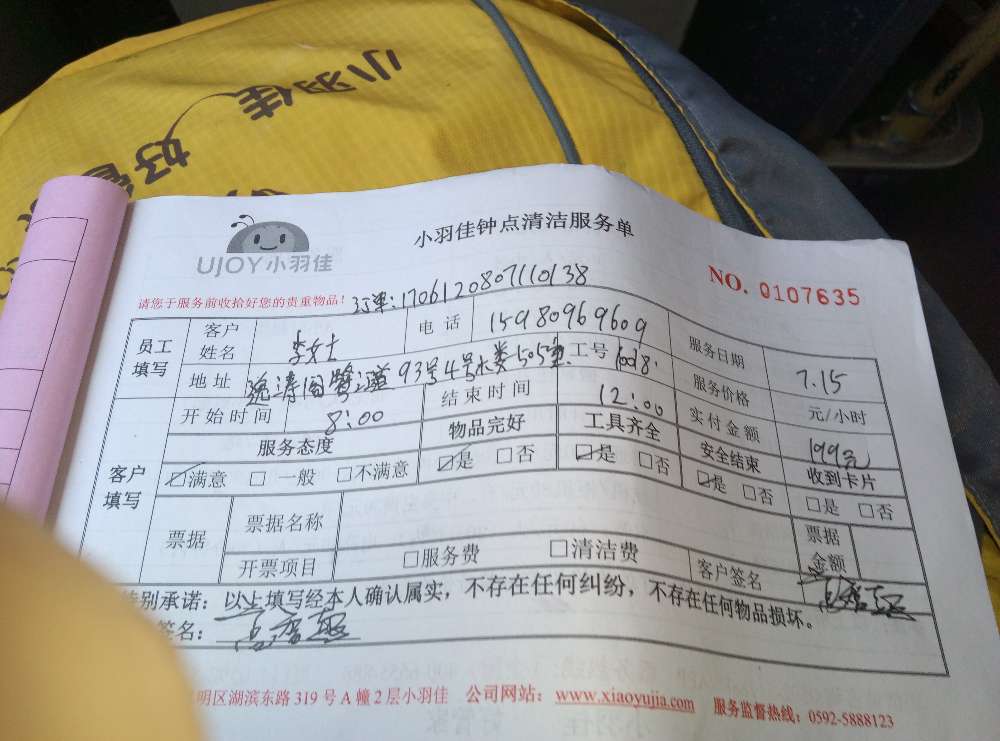 小羽佳
好管
小羽佳钟点清洁服务单
UJOY小羽佳
NO. 0107635
请您于服务前收拾好您的贵重物品！ 订单:1706120807110138
员工填写 客户姓名 李女士 电话 15980969609 服务日期 7.15
地址 93号4号楼505室 工号 服务价格 元/小时
开始时间 8:00 结束时间 12:00 实付金额 199元
客户填写 服务态度 物品完好 工具齐全 安全结束 收到卡片
☑满意 □一般 □不满意 ☑是 □否 ☑是 □否 ☑是 □否 □是 □否
票据 票据名称 票据金额
开票项目 □服务费 □清洁费 客户签名
特别承诺：以上填写经本人确认属实，不存在任何纠纷，不存在任何物品损坏。
签名：
明区湖滨东路 319 号 A 幢 2 层小羽佳 公司网站： www.xiaoyujia.com 服务监督热线：0592-5888123